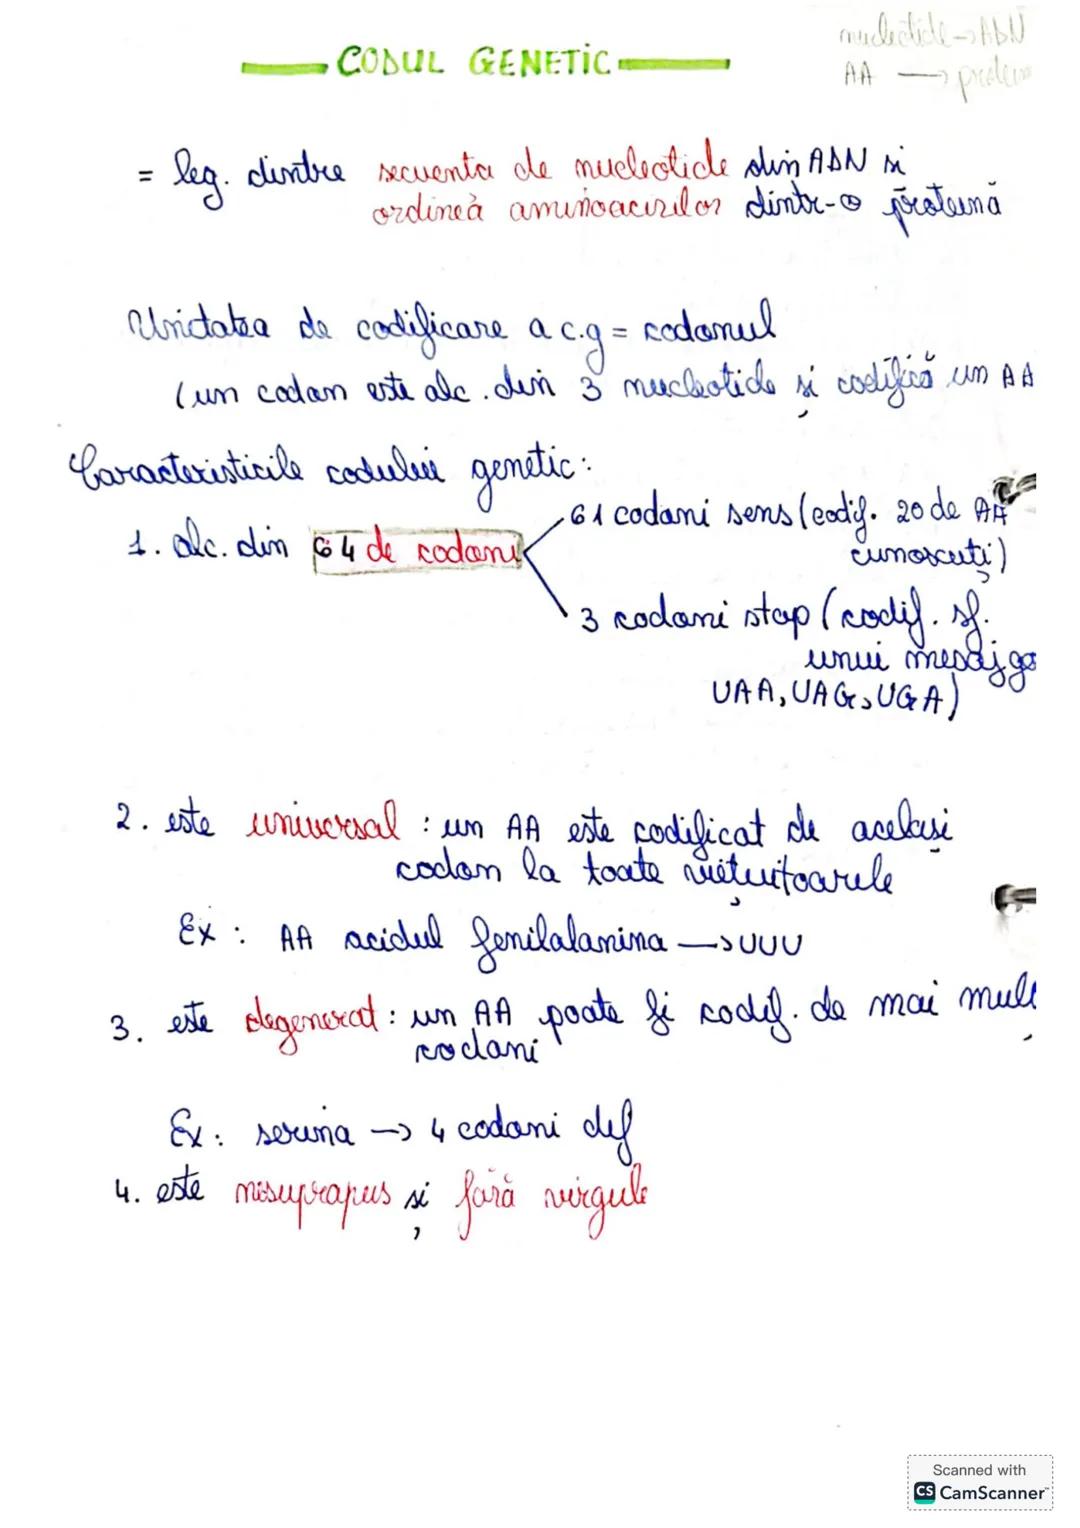 CODUL GENETIC
nucleotide → ADN
AA → protein
= leg. dintre secventa de nucleotide din ADN si
ordinea aminoacizilor dintr-o proteină
Unitatea de codificare a c.g = codonul
(un codon este alc. din 3 nucleotide și codifică un AA
Caracteristicile codului genetic:
1. alc. din 64 de codoni
61 codoni sens (codif. 20 de AA
cunoscuți)
3 codoni stop (codif. sf.
unui mesaj ge
UAA, UAG, UGA)
2. este universal : un AA este codificat de același
codon la toate viețuitoarele
Ex : AA acidul fenilalanina → UUU
3. este degenerat : un AA poate fi codif. de mai mulț
codoni
Ex : serina → 4 codoni dif
4. este nesuprapus și fără virgule
Scanned with
CS CamScanner